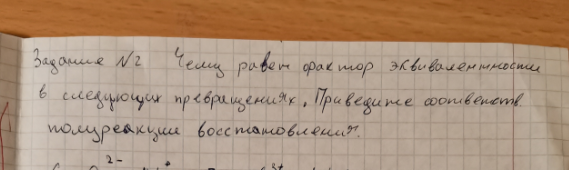 Задание №2 Чему равен фактор эквивалентности
в следующих превращениях. Приведите соответств.
полуреакции восстановления.
2-